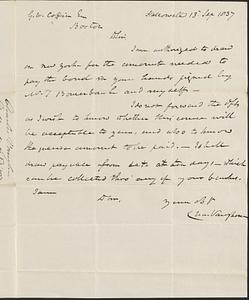 G. W. Coffin Esq Hallowell 13 Sep 1837
Boston
Sir
I am authorized to draw
on new york for the amount needed to
pay the bond in your hands signed by
W. T. and myself -
I do not forward the dfts
as I wish to know whether this course will
be acceptable to you, and also to know
the precise amount to be paid. - I shall
draw payable from at ten days - which
can be collected thro' any of your banks.
I am
Sir,
Your ob St
Cha: Vaughan